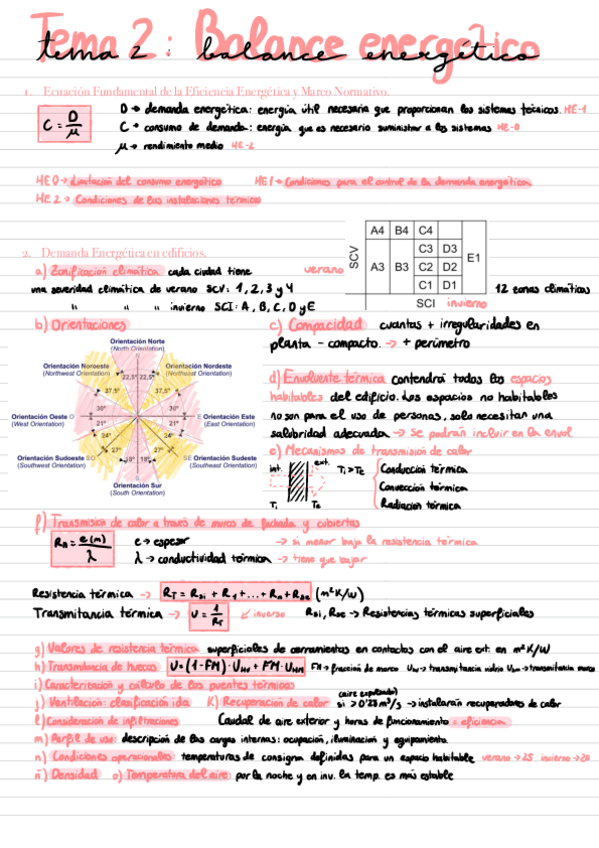 Tema 2: Balance energético
1. Ecuación Fundamental de la Eficiencia Energética y Marco Normativo.
C = D / μ
D → demanda energética: energía útil necesaria que proporcionan los sistemas técnicos. HE-1
C → consumo de demanda: energía que es necesario suministrar a los sistemas HE-0
μ → rendimiento medio HE-2
HE0 → Limitación del consumo energético HE1 → Condiciones para el control de la demanda energética
HE2 → Condiciones de las instalaciones térmicas
2. Demanda Energética en edificios.
a) Zonificación climática cada ciudad tiene verano
una severidad climática de verano SCV: 1, 2, 3 y 4
" " " invierno SCI: A, B, C, D y E
SCV
A4 B4 C4
A3 B3 C3 D3 E1
C2 D2
C1 D1
SCI invierno
12 zonas climáticas
b) Orientaciones
Orientación Norte
(North Orientation)
Orientación Noroeste
(Northwest Orientation)
Orientación Nordeste
(Northeast Orientation)
22,5° 22,5°
37,5° 37,5°
30° 30°
Orientación Oeste O
(West Orientation)
E Orientación Este
(East Orientation)
21° 21°
24° 24°
27° 18° 18° 27°
Orientación Sudoeste SO
(Southwest Orientation)
SE Orientación Sudeste
(Southeast Orientation)
Orientación Sur
(South Orientation)
c) Compacidad cuantas + irregularidades en
planta - compacto. → + perímetro
d) Envolvente térmica contendrá todos los espacios
habitables del edificio. Los espacios no habitables
no son para el uso de personas, solo necesitan una
salubridad adecuada → Se podrán incluir en la envol.
e) Mecanismos de transmisión de calor
int. ext. Ti > Te
Conducción térmica
Convección térmica
Radiación térmica
Ti Te
f) Transmisión de calor a través de muros de fachada y cubiertas
Rn = e(m) / λ
e → espesor → si menor baja la resistencia térmica
λ → conductividad térmica → tiene que bajar
Resistencia térmica → RT = Rsi + R1 + ... + Rn + Rse (m²K/W)
Transmitancia térmica → U = 1 / RT inverso Rsi, Rse → Resistencias térmicas superficiales
g) Valores de resistencia térmica superficiales de cerramientos en contactos con el aire ext. en m²K/W
h) Transmitancia de huecos U = (1-FM) · UHv + FM · UHM FM → fracción de marco UHv → transmitancia vidrio UHM → transmitancia marco
i) Caracterización y cálculo de los puentes térmicos
j) Ventilación: clasificación ida K) Recuperación de calor (aire expulsado) si > 0'28 m³/s → instalarán recuperadores de calor
l) Consideración de infiltraciones Caudal de aire exterior y horas de funcionamiento = eficiencia
m) Perfil de uso descripción de las cargas internas: ocupación, iluminación y equipamiento.
n) Condiciones operacionales temperaturas de consigna definidas para un espacio habitable verano → 25 invierno → 20
ñ) Densidad o) Temperatura del aire por la noche y en inv. la temp. es más estable